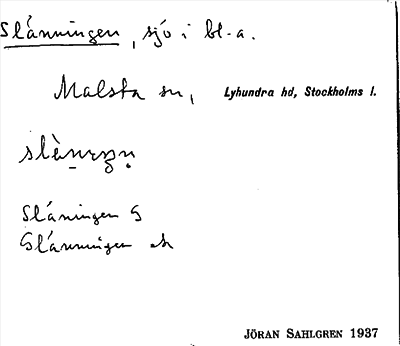 Slänningen, sjö i bl.a.
Malsta sn, Lyhundra hd, Stockholms l.
Slåningen G
Slånningen ek
JÖRAN SAHLGREN 1937